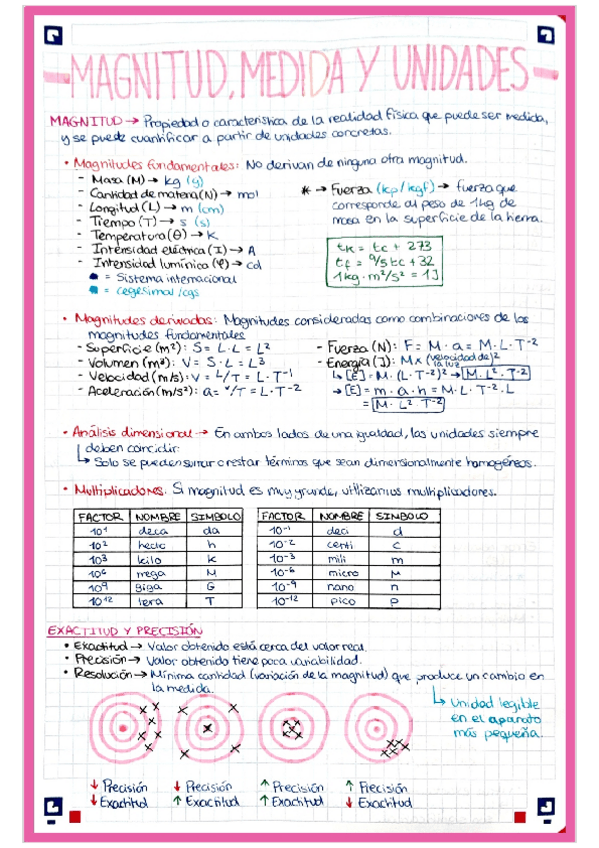 MAGNITUD, MEDIDA Y UNIDADES
MAGNITUD → Propiedad o característica de la realidad física que puede ser medida,
y se puede cuantificar a partir de unidades concretas.
• Magnitudes fundamentales: No derivan de ninguna otra magnitud.
- Masa (M) → kg (g)
- Cantidad de materia (N) → mol
- Longitud (L) → m (cm)
- Tiempo (T) → s (s)
- Temperatura (θ) → K
- Intensidad eléctrica (I) → A
- Intensidad lumínica (φ) → cd
= Sistema internacional
= cegesimal / cgs
* → Fuerza (kp/kgf) → fuerza que
corresponde al peso de 1kg de
masa en la superficie de la tierra.
tK = tc + 273
tf = 9/5 tc + 32
1kg · m²/s² = 1J
• Magnitudes derivadas: Magnitudes consideradas como combinaciones de las
magnitudes fundamentales
- Superficie (m²): S = L · L = L²
- Volumen (m³): V = S · L = L³
- Velocidad (m/s): V = L/T = L · T⁻¹
- Aceleración (m/s²): a = v/T = L · T⁻²
- Fuerza (N): F = M · a = M · L · T⁻²
- Energía (J): M x (velocidad de la luz)²
↳ [E] = M · (L · T⁻¹)² → M · L² · T⁻²
→ [E] = m · a · h = M · L · T⁻² · L
= M · L² T⁻²
• Análisis dimensional → En ambos lados de una igualdad, las unidades siempre
deben coincidir:
↳ Solo se pueden sumar o restar términos que sean dimensionalmente homogéneos.
• Multiplicadores: Si magnitud es muy grande, utilizamos multiplicadores.
FACTOR NOMBRE SIMBOLO
10¹ deca da
10² hecto h
10³ kilo k
10⁶ mega M
10⁹ giga G
10¹² tera T
FACTOR NOMBRE SIMBOLO
10⁻¹ deci d
10⁻² centi c
10⁻³ mili m
10⁻⁶ micro μ
10⁻⁹ nano n
10⁻¹² pico p
EXACTITUD Y PRECISIÓN
• Exactitud → Valor obtenido está cerca del valor real.
• Precisión → Valor obtenido tiene poca variabilidad.
• Resolución → Mínima cantidad (variación de la magnitud) que produce un cambio en
la medida.
↳ Unidad legible
en el aparato
más pequeña.
↓ Precisión
↓ Exactitud
↓ Precisión
↑ Exactitud
↑ Precisión
↑ Exactitud
↑ Precisión
↓ Exactitud